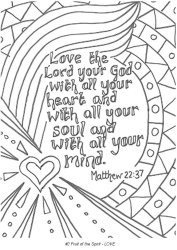 Love the
Lord your God
with all your
heart and
with all your
soul and
with all your
mind.
Matthew 22:37
#2 Fruit of the Spirit - LOVE